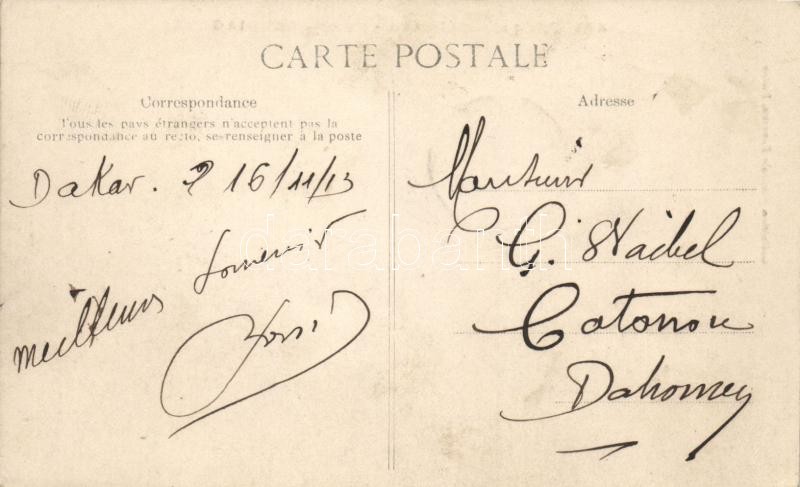 CARTE POSTALE
Correspondance
Tous les pays étrangers n'acceptent pas la
correspondance au recto, se renseigner à la poste
Dakar. 16/11/13
meilleurs souvenirs
Adresse
Monsieur
G.
Cotonou
Dahomey
darabanth